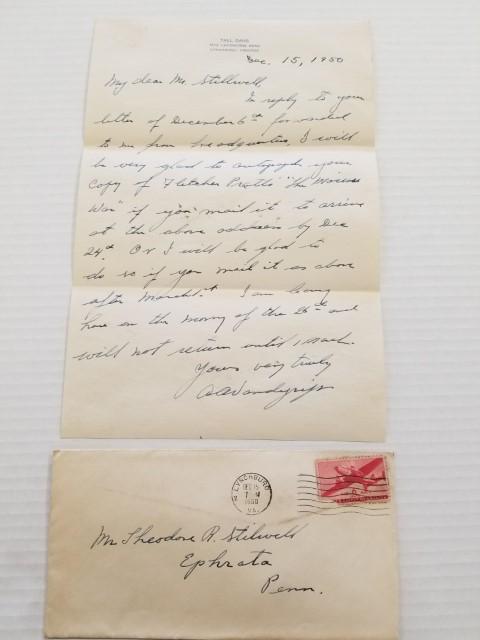 TALL OAKS
LYNCHBURG, VIRGINIA
Dec. 15, 1950
My dear Mr. Stillwell,
In reply to your
letter of December 6th forwarded
to me from headquarters, I will
be very glad to autograph your
copy of Fletcher Pratt's "The Marines
War" if you mail it to arrive
at the above address by Dec
24th. Or I will be glad to
do so if you mail it as above
after March 1st. I am leaving
here on the morning of the 26th and
will not return until 1 March.
Yours very truly
A A Vandegrift
LYNCHBURG
DEC 15
1950
VA.
Mr Theodore R. Stilwell
Ephrata
Penn.